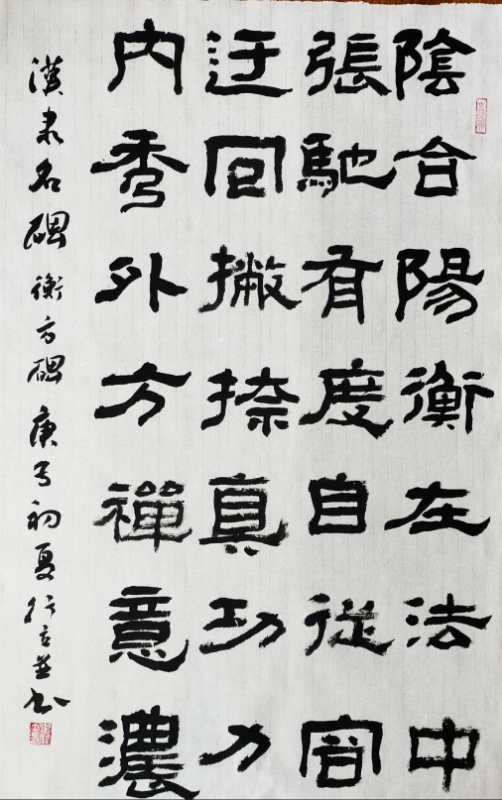 陰合陽衡在法中
張馳有度自從容
迂回撇捺真功力
内秀外方禪意濃
漢隶名碑衡方碑庚子初夏